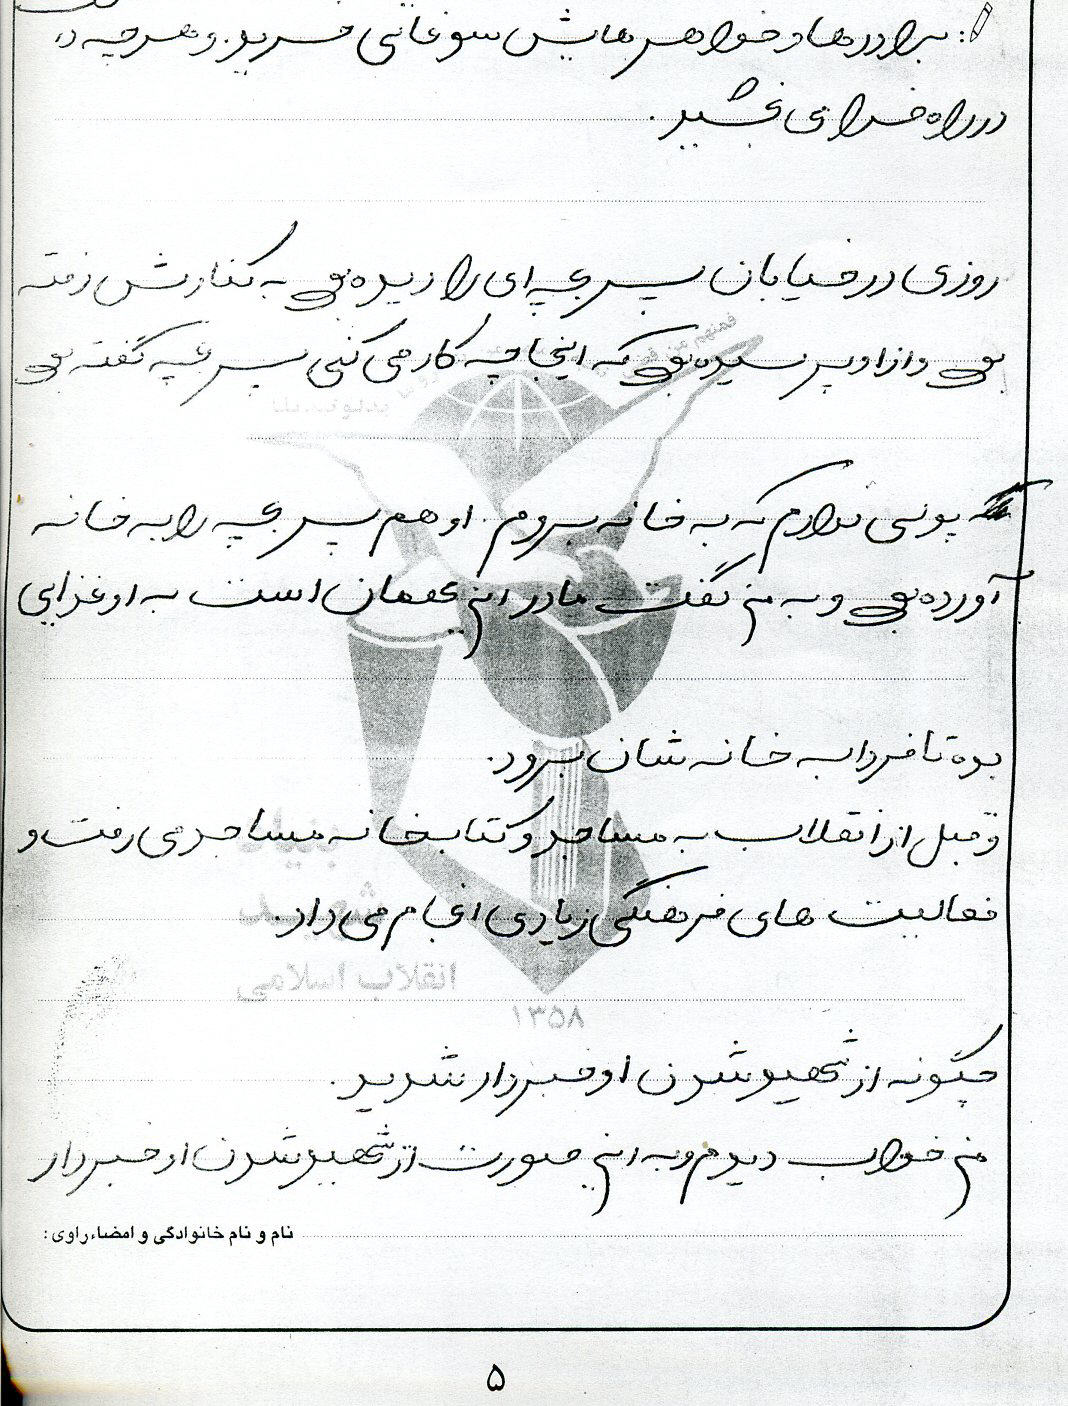 برادرها و خواهرهایش سوغاتی می‌خرید. و هر چه د
در راه خدا می بخشید.
روزی در خیابان پسر بچه ای را دیده بود به کنارش رفته
بود و از او پرسیده بود که اینجا چه کار می کنی پسر بچه گفته بود
پولی ندارم که به خانه بروم. او هم پسر بچه را به خانه
آورده بود و به من گفت مادر این مهمان است به او غذایی
بده تا فردا به خانه شان برود.
و قبل از انقلاب به مساجد و کتابخانه مساجد می رفت و
فعالیت های فرهنگی زیادی انجام می داد.
بنیاد
شهید
انقلاب اسلامی
۱۳۵۸
چگونه از شهید شدن او خبردار شدید.
من خواب دیدم و به این صورت از شهید شدن او خبردار
نام و نام خانوادگی و امضاء راوی:
۵